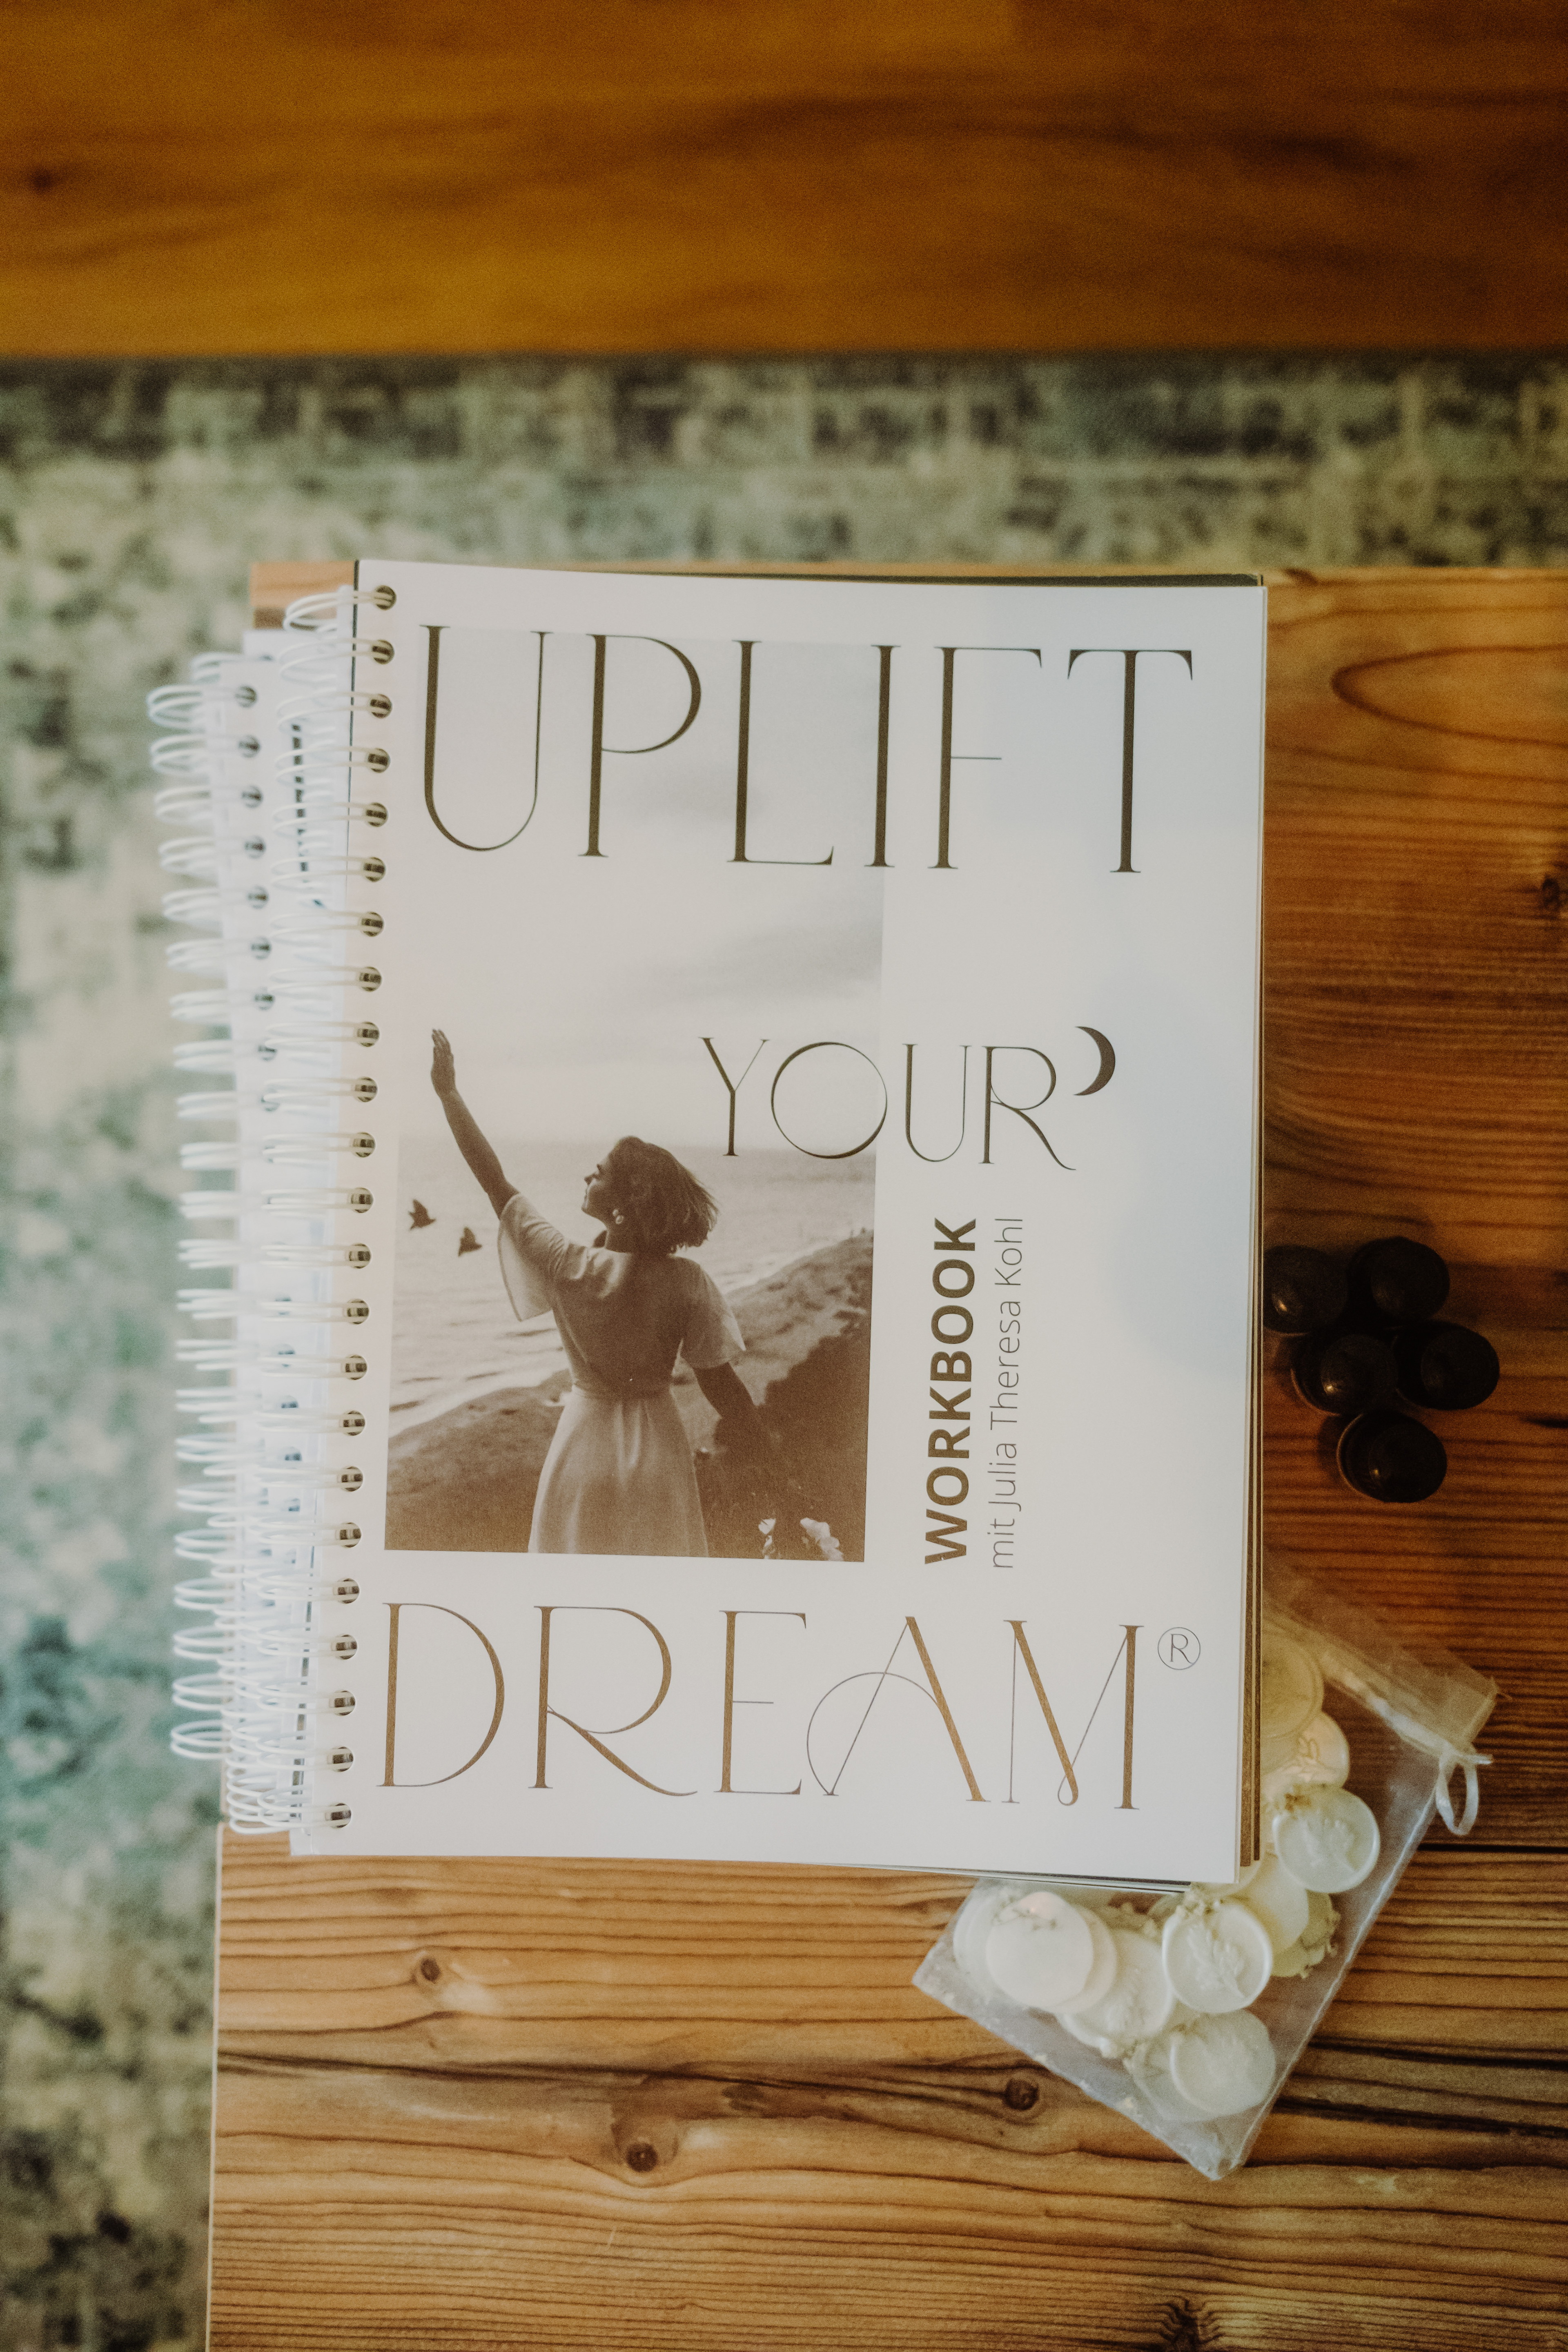 UPLIFT
YOUR
WORKBOOK
mit Julia Theresa Kohl
DREAM®